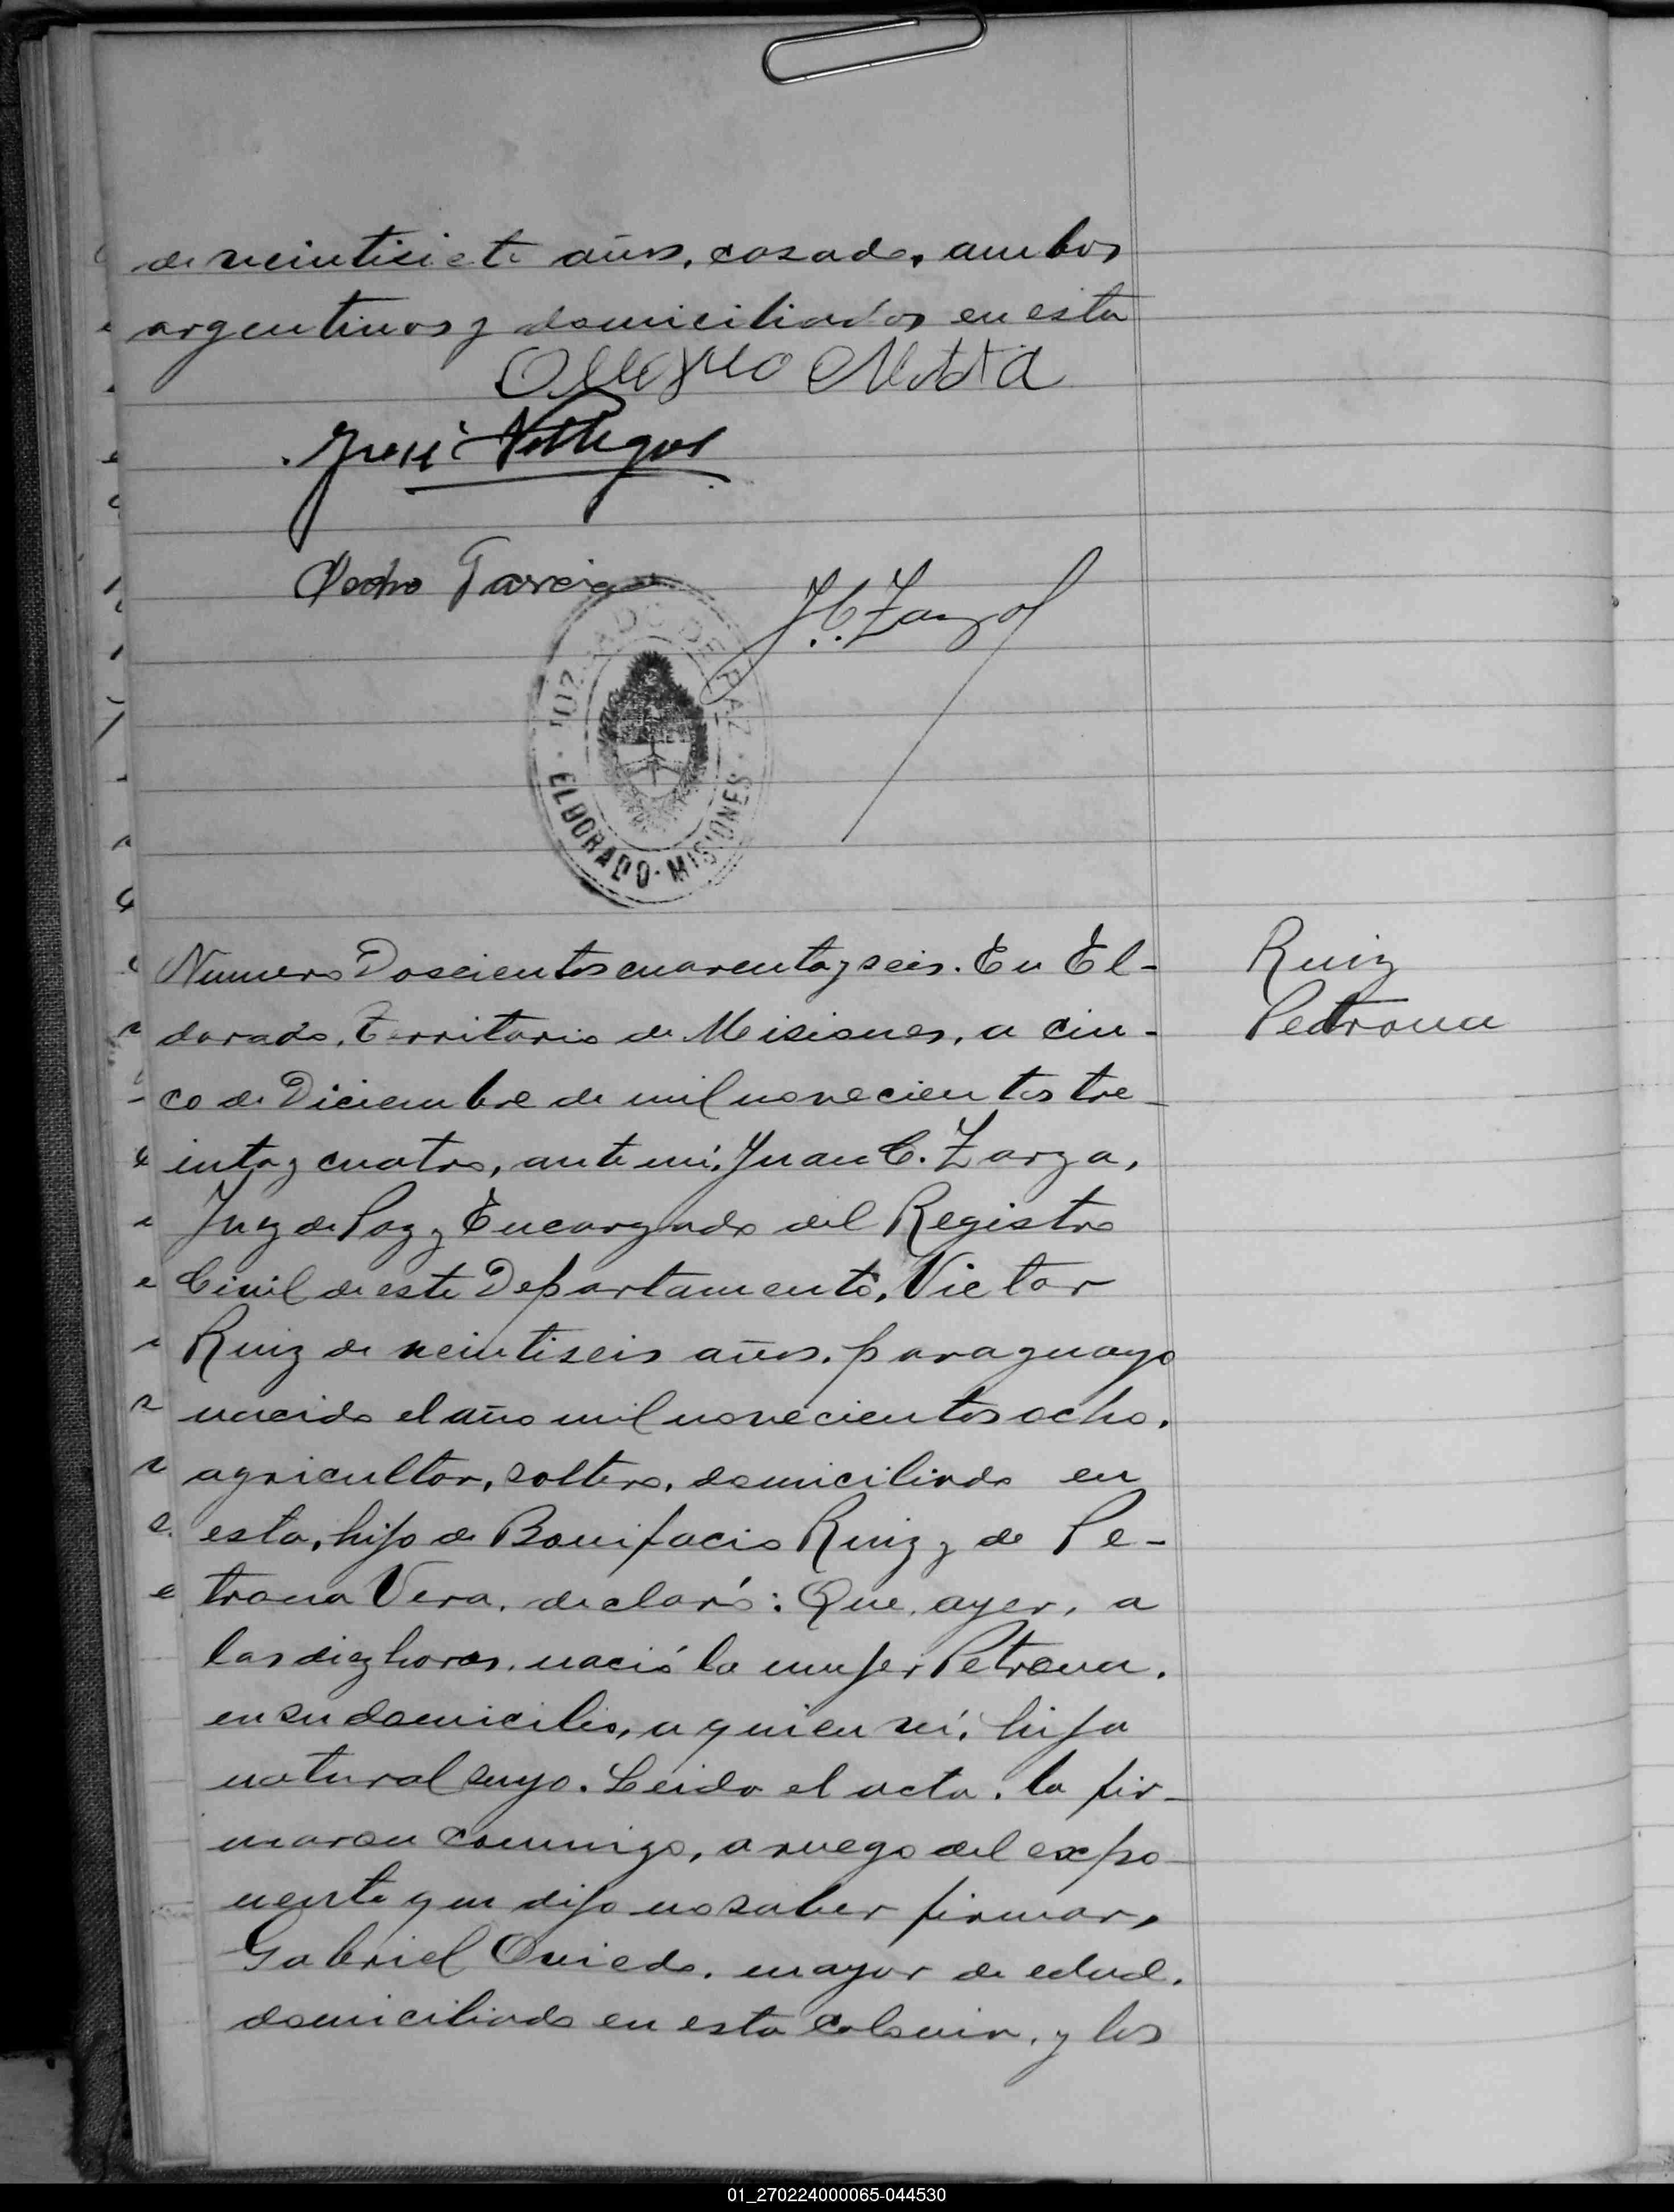 de veintisiete años, casado, ambos
argentinos y domiciliados en esta
José Villegas
Pedro Garcia
J. C. Zarza
JUZGADO DE PAZ
· ELDORADO · MISIONES ·
Numero Doscientos cuarenta y seis. En El-
Ruiz
dorado, Territorio de Misiones, a cin-
Petrona
co de Diciembre de mil novecientos tre-
inta y cuatro, ante mí, Juan C. Zarza,
Juez de Paz y Encargado del Registro
Civil de este Departamento, Victor
Ruiz de veintiseis años, paraguayo
nacido el año mil novecientos ocho,
agricultor, soltero, domiciliado en
esta, hijo de Bonifacio Ruiz y de Pe-
trona Vera, declaró: Que, ayer, a
las diez horas, nació la mujer Petrona,
en su domicilio, a quien ví, hija
natural suya. Leida el acta, la fir-
maron conmigo, a ruego del expo-
nente que dijo no saber firmar,
Gabriel Oviedo, mayor de edad,
domiciliado en esta colonia, y los
01_270224000065-044530